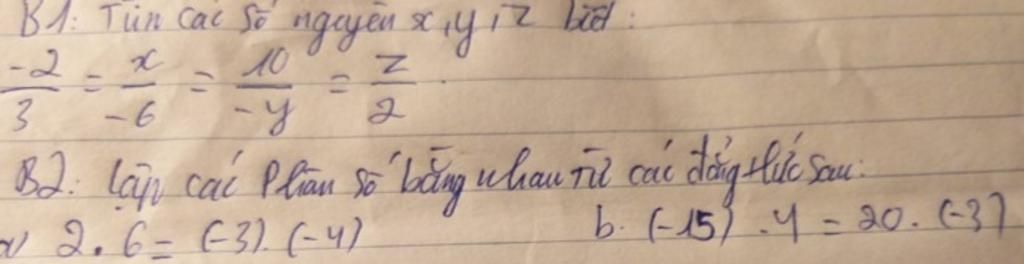 B1: Tìm các số nguyên x, y, z biết:
-2/3 = x/-6 = 10/-y = z/2
B2: Lập các phân số bằng nhau từ các đẳng thức sau:
a) 2.6 = (-3).(-4) b. (-15).4 = 20.(-3)